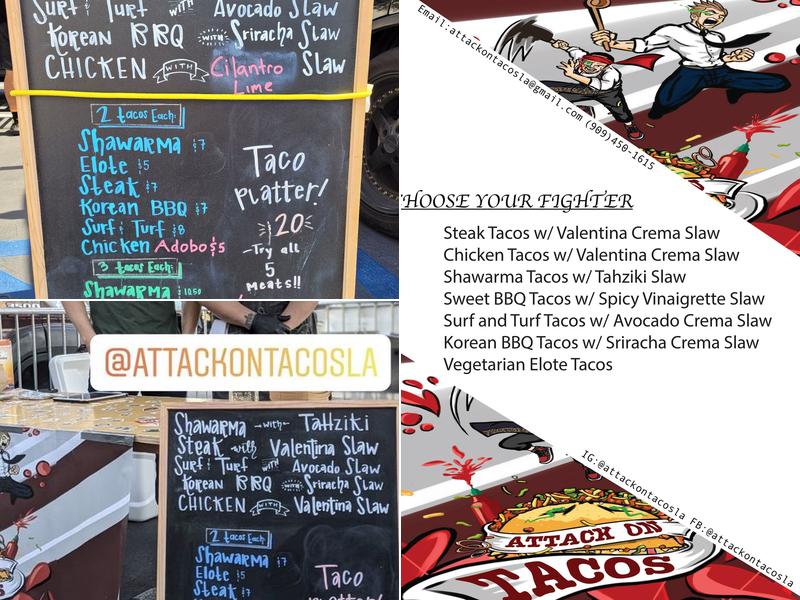 Surf & Turf with Avocado Slaw
Korean BBQ with Sriracha Slaw
CHICKEN WITH Cilantro Lime Slaw
2 tacos Each:
Shawarma $7
Elote $5
Steak $7
Korean BBQ $7
Surf & Turf $8
Chicken Adobo $5
3 tacos Each:
Shawarma $10.50
Taco
Platter!
$20
Try all
5
meats!!
@ATTACKONTACOSLA
Shawarma with Tahziki
Steak with Valentina Slaw
Surf & Turf with Avocado Slaw
Korean BBQ with Sriracha Slaw
CHICKEN WITH Valentina Slaw
2 tacos Each:
Shawarma $7
Elote $5
Steak $7
Taco
Platter!
Email:attackontacosla@gmail.com (909)450-1615
HOOSE YOUR FIGHTER
Steak Tacos w/ Valentina Crema Slaw
Chicken Tacos w/ Valentina Crema Slaw
Shawarma Tacos w/ Tahziki Slaw
Sweet BBQ Tacos w/ Spicy Vinaigrette Slaw
Surf and Turf Tacos w/ Avocado Crema Slaw
Korean BBQ Tacos w/ Sriracha Crema Slaw
Vegetarian Elote Tacos
IG:@attackontacosla FB:@attackontacosla
ATTACK ON
TACOS